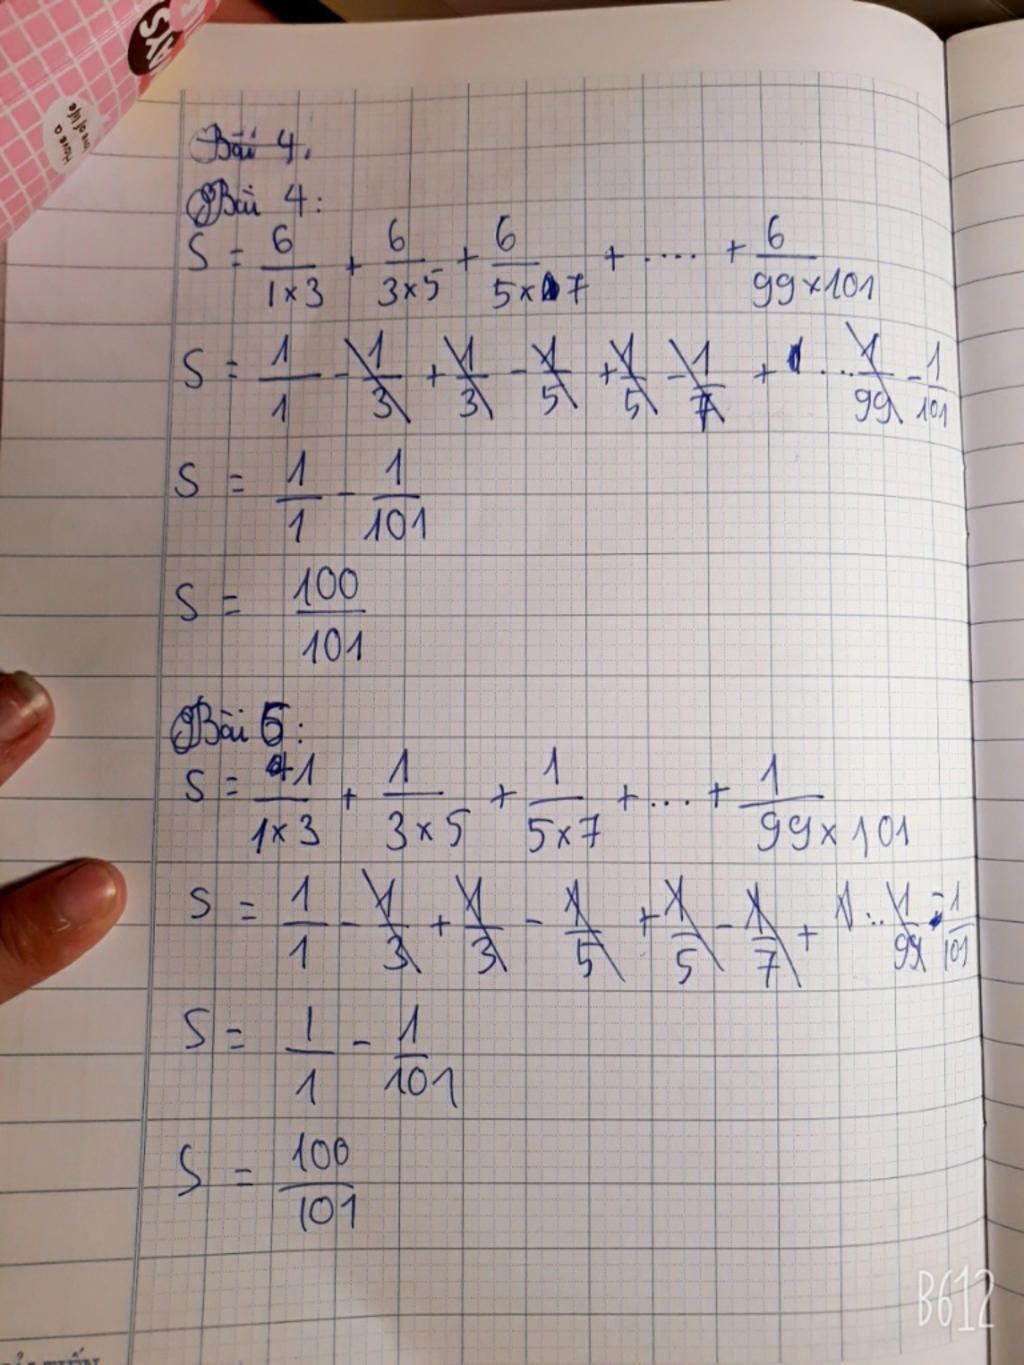 SY
Have a
time of life
Bài 4.
Bài 4:
S = 6/1×3 + 6/3×5 + 6/5×7 + .... + 6/99×101
S = 1/1 - 1/3 + 1/3 - 1/5 + 1/5 - 1/7 + ... 1/99 - 1/101
S = 1/1 - 1/101
S = 100/101
Bài 5:
S = 1/1×3 + 1/3×5 + 1/5×7 + ... + 1/99×101
S = 1/1 - 1/3 + 1/3 - 1/5 + 1/5 - 1/7 + 1 .. 1/99 - 1/101
S = 1/1 - 1/101
S = 100/101
B612